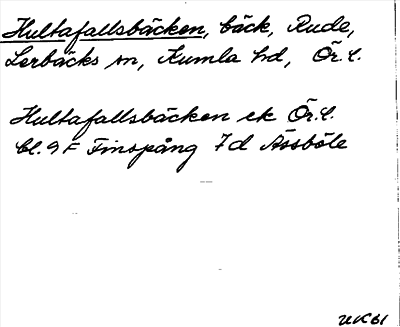 Hultafallsbäcken, bäck, Rude,
Lerbäcks sn, Kumla hd, Ör.l.
Hultafallsbäcken ek Ör.l.
bl. 9F Finspång 7d Åssböle
UK61